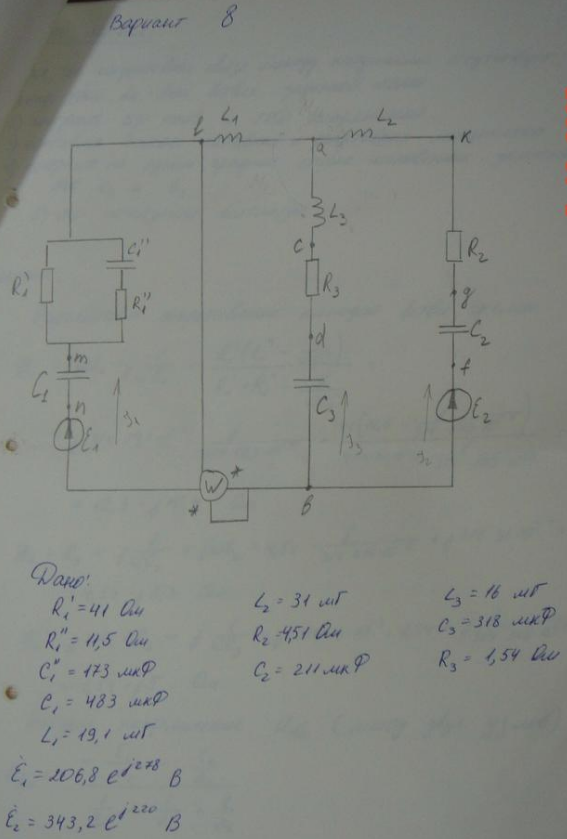 Вариант 8
l L₁ a L₂ к
L₃
C₁'' c
R₁' R₁'' R₃ R₂
g
m d C₂
C₁ f
n C₃ E₂
E₁ J₁ J₃ J₂
* W * в
Дано:
R₁' = 41 Ом
R₁'' = 11,5 Ом
C₁'' = 173 мкФ
C₁ = 483 мкФ
L₁ = 19,1 мГ
Ė₁ = 206,8 e^j278 В
Ė₂ = 343,2 e^j220 В
L₂ = 31 мГ
R₂ = 4,51 Ом
C₂ = 211 мкФ
L₃ = 16 мГ
C₃ = 318 мкФ
R₃ = 1,54 Ом